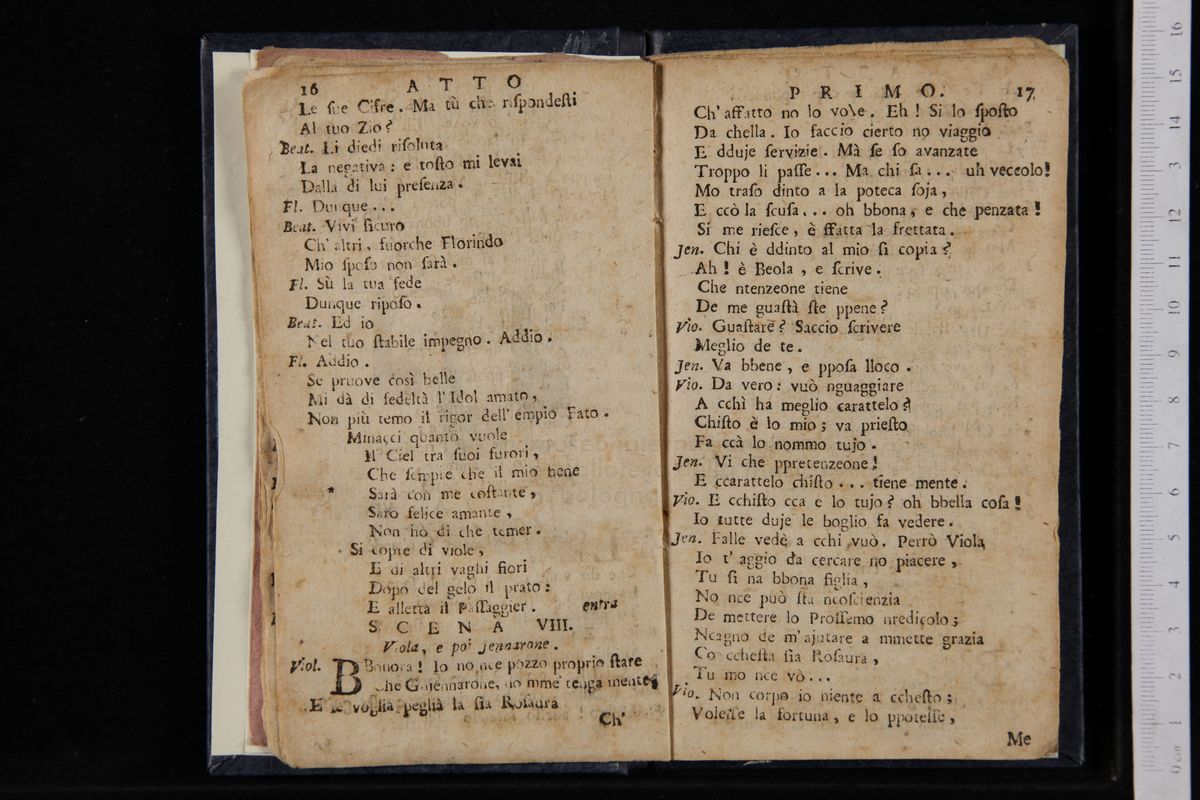 16 ATTO
Le sue Cifre. Ma tù che rispondesti
Al tuo Zio?
Beat. Li diedi risoluta
La negativa: e tosto mi levai
Dalla di lui presenza.
Fl. Dunque...
Beat. Vivi sicuro
Ch' altri, fuorche Florindo
Mio sposo non sarà.
Fl. Sù la tua fede
Dunque riposo.
Beat. Ed io
Nel tuo stabile impegno. Addio.
Fl. Addio.
Se pruove così belle
Mi dà di fedeltà l' Idol amato,
Non più temo il rigor dell' empio Fato.
Minacci quanto vuole
Il Ciel tra suoi furori,
Che sempre che il mio bene
Sarà con me costante,
Sarò felice amante,
Non hò di che temer.
Si copre di viole,
E di altri vaghi fiori
Dopo del gelo il prato:
E alletta il Passaggier. entra
SCENA VIII.
Viola, e poi Jennarone.
Viol. BBonora! Io no nce pozzo proprio stare
Che Gnjennarone, no mme tenga mente;
E se voglia peglià la sia Rosaura
Ch'
PRIMO. 17
Ch' affatto no lo vole. Eh! Si lo sposto
Da chella. Io faccio cierto no viaggio
E dduje servizie. Mà se so avanzate
Troppo li passe... Ma chi sa... uh veceolo!
Mo traso dinto a la poteca soja,
E ccò la scusa... oh bbona, e che penzata!
Si me riesce, è ffatta la frettata.
Jen. Chi è ddinto al mio si copia?
Ah! è Beola, e scrive.
Che ntenzeone tiene
De me guastà ste ppene?
Vio. Guastare? Saccio scrivere
Meglio de te.
Jen. Va bbene, e pposa lloco.
Vio. Da vero: vuò nguaggiare
A cchì ha meglio carattelo?
Chisto è lo mio; va priesto
Fa ccà lo nommo tujo.
Jen. Vi che ppretenzeone!
E ccarattelo chisto... tiene mente.
Vio. E cchisto cca è lo tujo? oh bbella cosa!
Io tutte duje le boglio fa vedere.
Jen. Falle vedè a cchi vuò. Perrò Viola
Io t' aggio da cercare no piacere,
Tu si na bbona figlia,
No nce può sta ncoscienzia
De mettere lo Prossemo nredicolo;
Ncagno de m' ajutare a mmette grazia
Co cchesta sia Rosaura,
Tu mo nce vò...
Vio. Non corpo io niente a cchesto;
Volesse la fortuna, e lo ppotesse,
Me